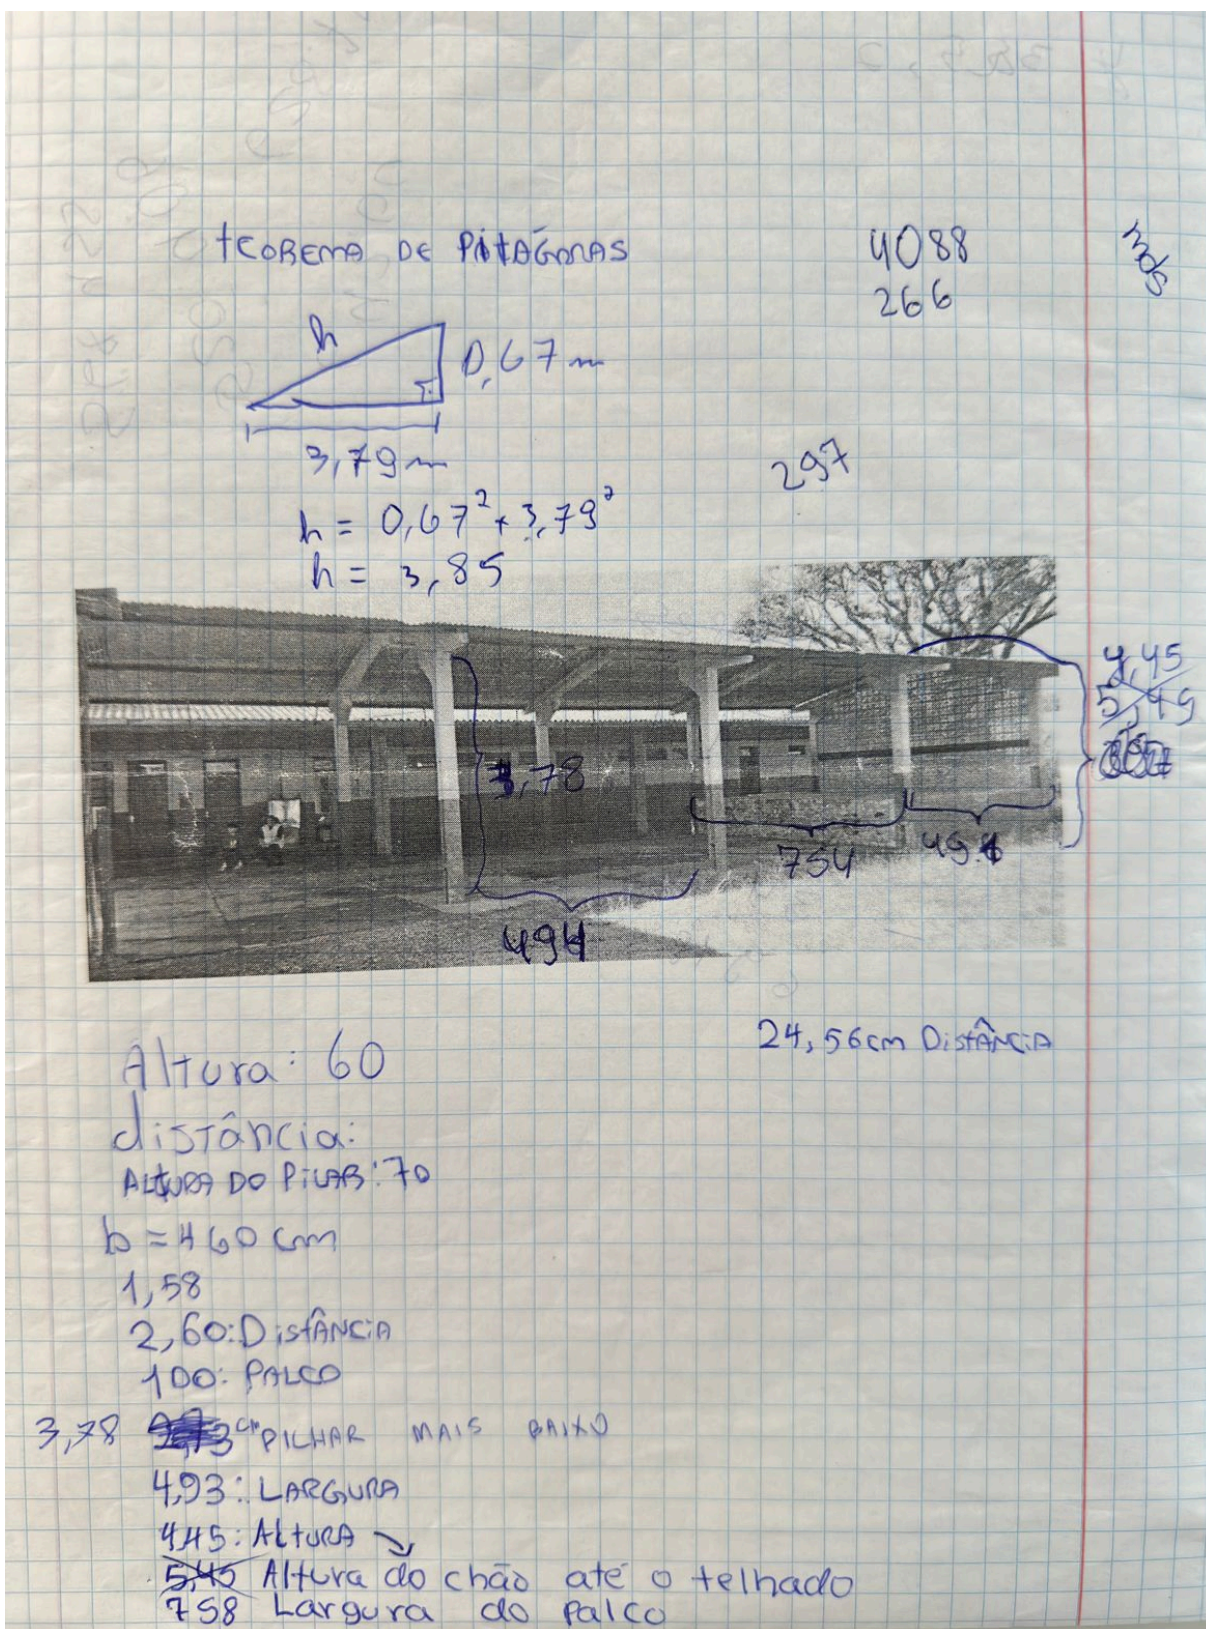 TEOREMA DE PITÁGORAS
4088
266
h
0,67 m
3,79 m
297
h = 0,67² + 3,79²
h = 3,85
4,45
5,45
3,78
754
494
494
24,56 cm DISTÂNCIA
Altura: 60
distância:
ALTURA DO PILAR: 70
b = 460 cm
1,58
2,60: DISTÂNCIA
100: PALCO
3,78 cm PILHAR MAIS BAIXO
4,93: LARGURA
4,45: ALTURA
5,45 Altura do chão até o telhado
758 Largura do palco